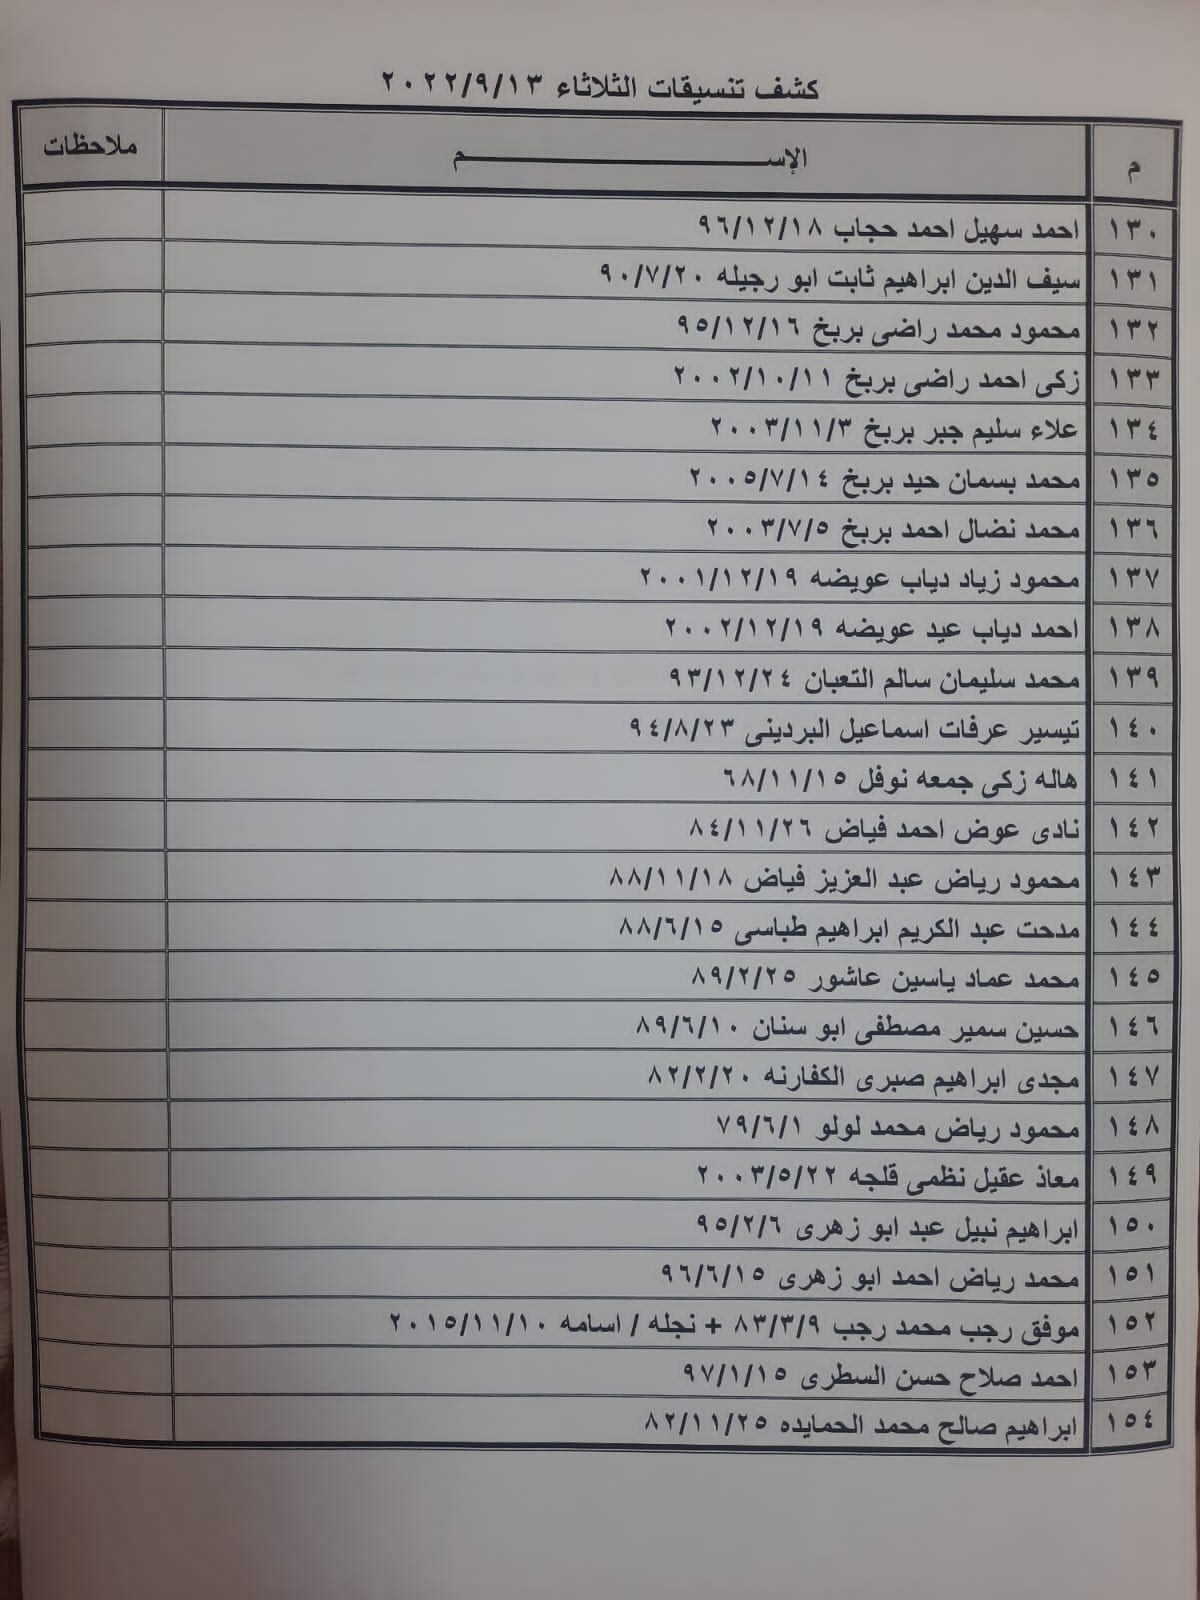 كشف تنسيقات الثلاثاء ٢٠٢٢/٩/١٣
م الإســـــــــــم ملاحظات
١٣٠ احمد سهيل احمد حجاب ٩٦/١٢/١٨
١٣١ سيف الدين ابراهيم ثابت ابو رجيله ٩٠/٧/٢٠
١٣٢ محمود محمد راضى بربخ ٩٥/١٢/١٦
١٣٣ زكى احمد راضى بربخ ٢٠٠٢/١٠/١١
١٣٤ علاء سليم جبر بربخ ٢٠٠٣/١١/٣
١٣٥ محمد بسمان حيد بربخ ٢٠٠٥/٧/١٤
١٣٦ محمد نضال احمد بربخ ٢٠٠٣/٧/٥
١٣٧ محمود زياد دياب عويضه ٢٠٠١/١٢/١٩
١٣٨ احمد دياب عيد عويضه ٢٠٠٢/١٢/١٩
١٣٩ محمد سليمان سالم التعبان ٩٣/١٢/٢٤
١٤٠ تيسير عرفات اسماعيل البردينى ٩٤/٨/٢٣
١٤١ هاله زكى جمعه نوفل ٦٨/١١/١٥
١٤٢ نادى عوض احمد فياض ٨٤/١١/٢٦
١٤٣ محمود رياض عبد العزيز فياض ٨٨/١١/١٨
١٤٤ مدحت عبد الكريم ابراهيم طباسى ٨٨/٦/١٥
١٤٥ محمد عماد ياسين عاشور ٨٩/٢/٢٥
١٤٦ حسين سمير مصطفى ابو سنان ٨٩/٦/١٠
١٤٧ مجدى ابراهيم صبرى الكفارنه ٨٢/٢/٢٠
١٤٨ محمود رياض محمد لولو ٧٩/٦/١
١٤٩ معاذ عقيل نظمى قلجه ٢٠٠٣/٥/٢٢
١٥٠ ابراهيم نبيل عبد ابو زهرى ٩٥/٢/٦
١٥١ محمد رياض احمد ابو زهرى ٩٦/٦/١٥
١٥٢ موفق رجب محمد رجب ٨٣/٣/٩ + نجله / اسامه ٢٠١٥/١١/١٠
١٥٣ احمد صلاح حسن السطرى ٩٧/١/١٥
١٥٤ ابراهيم صالح محمد الحمايده ٨٢/١١/٢٥